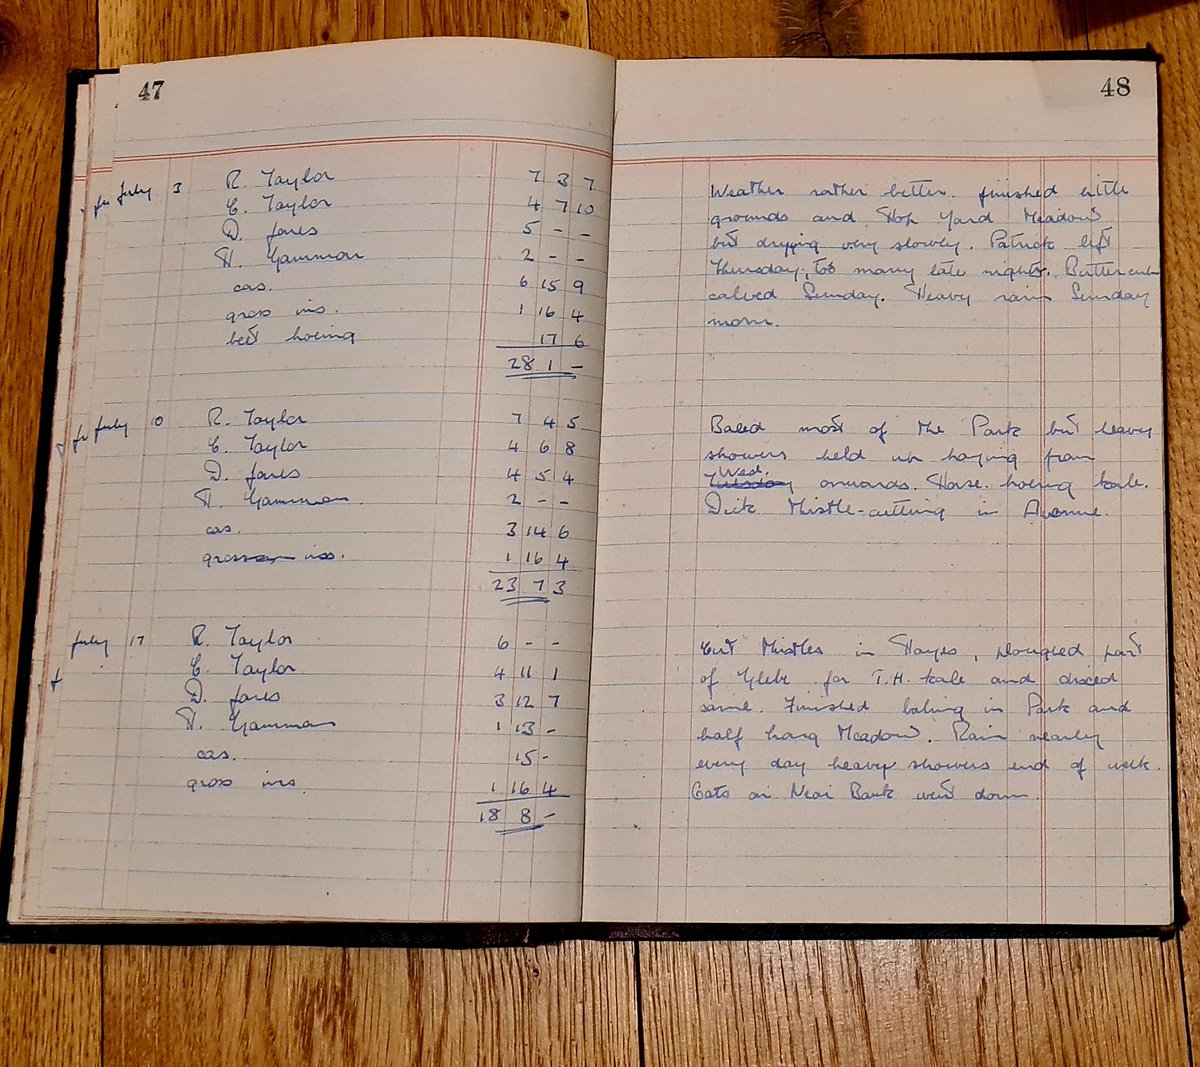 47
fri July 3 R. Taylor 7 3 7
C. Taylor 4 7 10
D. Jones 5 - -
H. Gammon 2 - -
cas. 6 15 9
gross ins. 1 16 4
beet hoeing 17 6
28 1 -
fri July 10 R. Taylor 7 4 5
C. Taylor 4 6 8
D. Jones 4 5 4
H. Gammon 2 - -
cas. 3 14 6
gross ins. 1 16 4
23 7 3
July 17 R. Taylor 6 - -
C. Taylor 4 11 1
D. Jones 3 12 7
H. Gammon 1 13 -
cas. 15 -
gross ins 1 16 4
18 8 -
48
Weather rather better. finished little
grounds and Hop Yard Meadow
but drying very slowly. Patrick left
Thursday, too many late nights. Buttercup
calved Sunday. Heavy rain Sunday
morn.
Baled most of the Park but heavy
showers held up haying from
Wed.
Tuesday onwards. Horse-hoeing kale.
Dick thistle-cutting in Avenue.
Cut thistles in Hayes, ploughed part
of Glebe for T.H. kale and disced
same. Finished baling in Park and
half Meadow. Rain nearly
every day heavy showers end of week.
Oats on Near Bank went down